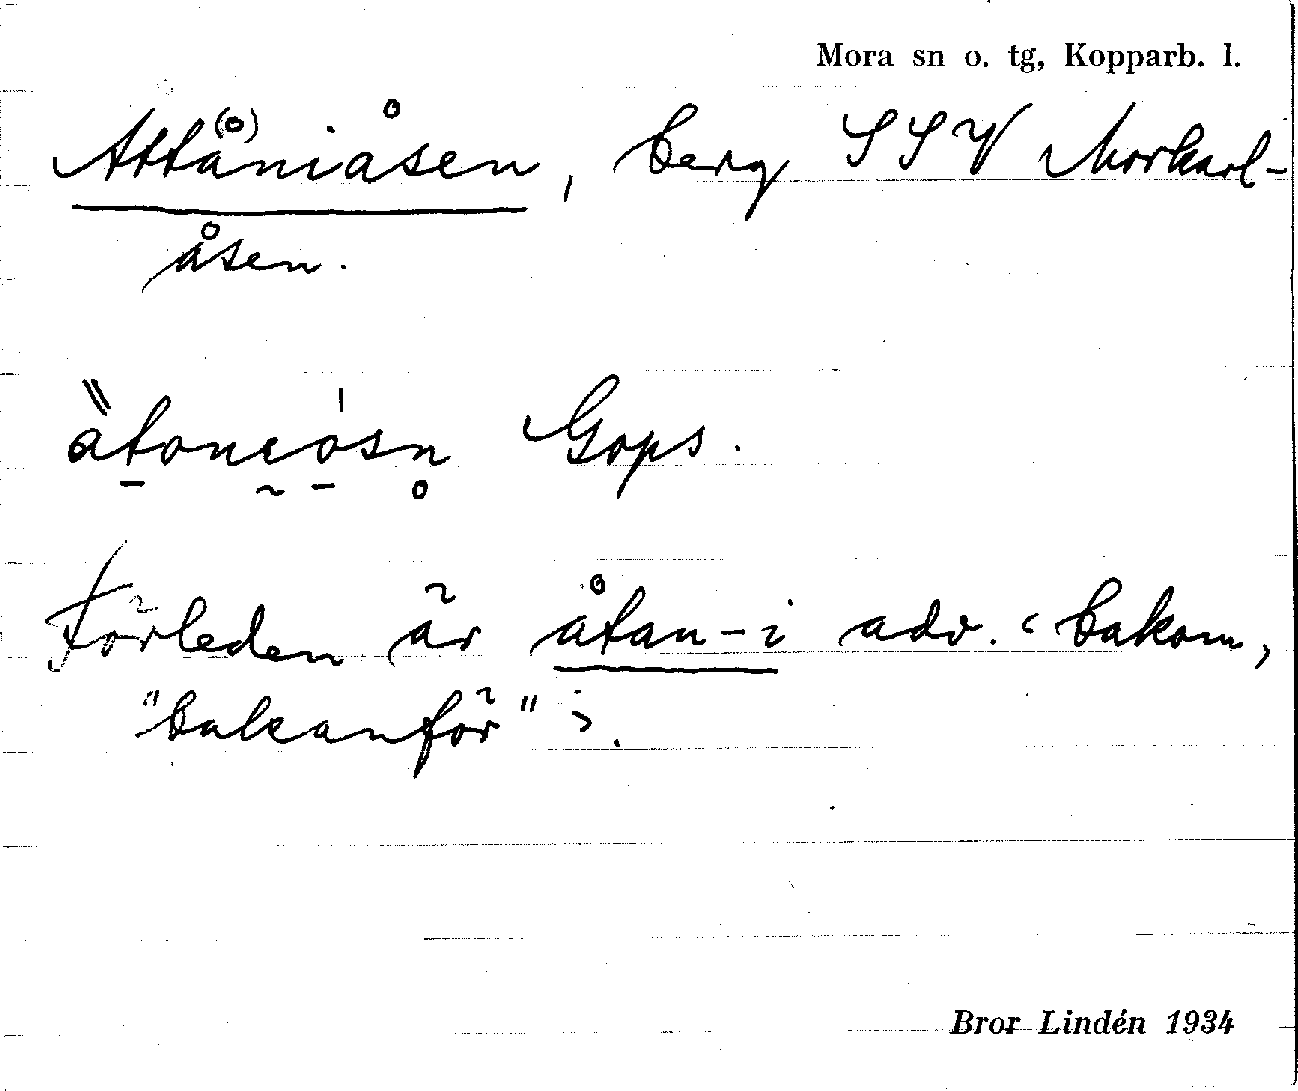 Mora sn o. tg, Kopparb. l.
Attåniåsen, berg SSV Morkarl-
åsen.
àtoneosn Gops.
Förleden är åtan-i adv. ‹bakom,
"bakanför"›.
Bror Lindén 1934